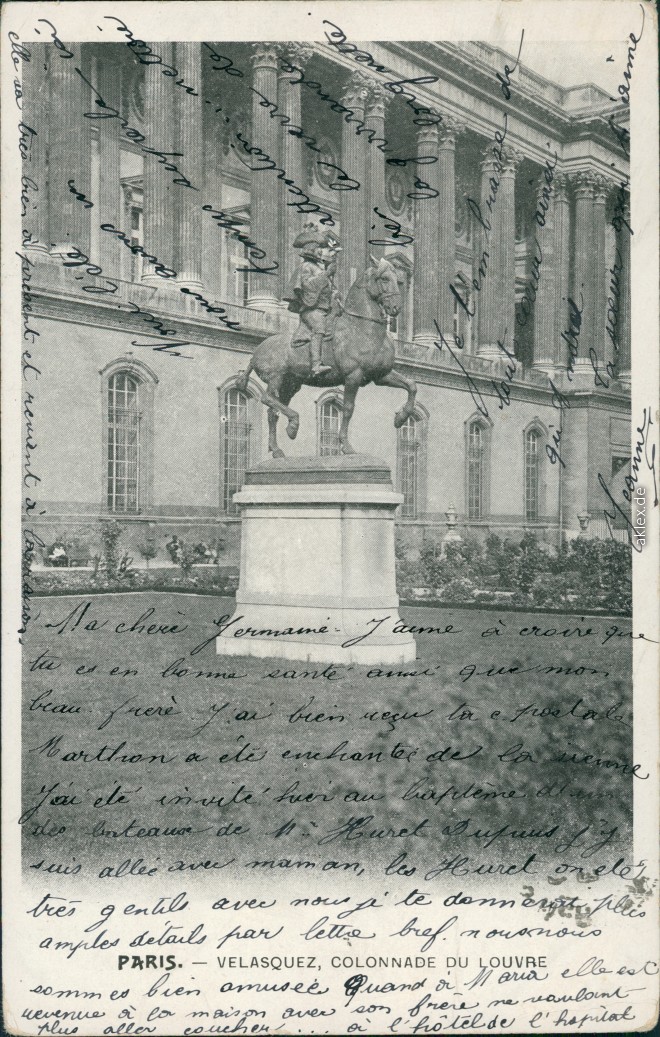 Ma chère Germaine. J'aime à croire que
tu es en bonne santé ainsi que mon
beau-frère J'ai bien reçu ta c. postale
Marthon a été enchantée de la sienne
J'ai été invité hier au baptème d'un
des bateaux de Mr Huret Dupuis j'y
suis allée avec maman, les Huret on été
très gentils avec nous je te donnerai plus
amples détails par lettre bref. nous nous
PARIS. — VELASQUEZ, COLONNADE DU LOUVRE
sommes bien amusée Quand à Maria elle est
revenue à la maison avec son frère ne voulant
plus aller coucher ... à l'hôtel de l'hopital
elle va très bien à présent et revient à la maison.
Nous avons un
temps superbe ici
attention
la verra de
lorgnette
Je t'embrasse de
tout cœur ainsi
qu'André
ta sœur qui t'aime
Jeanne
aklex.de